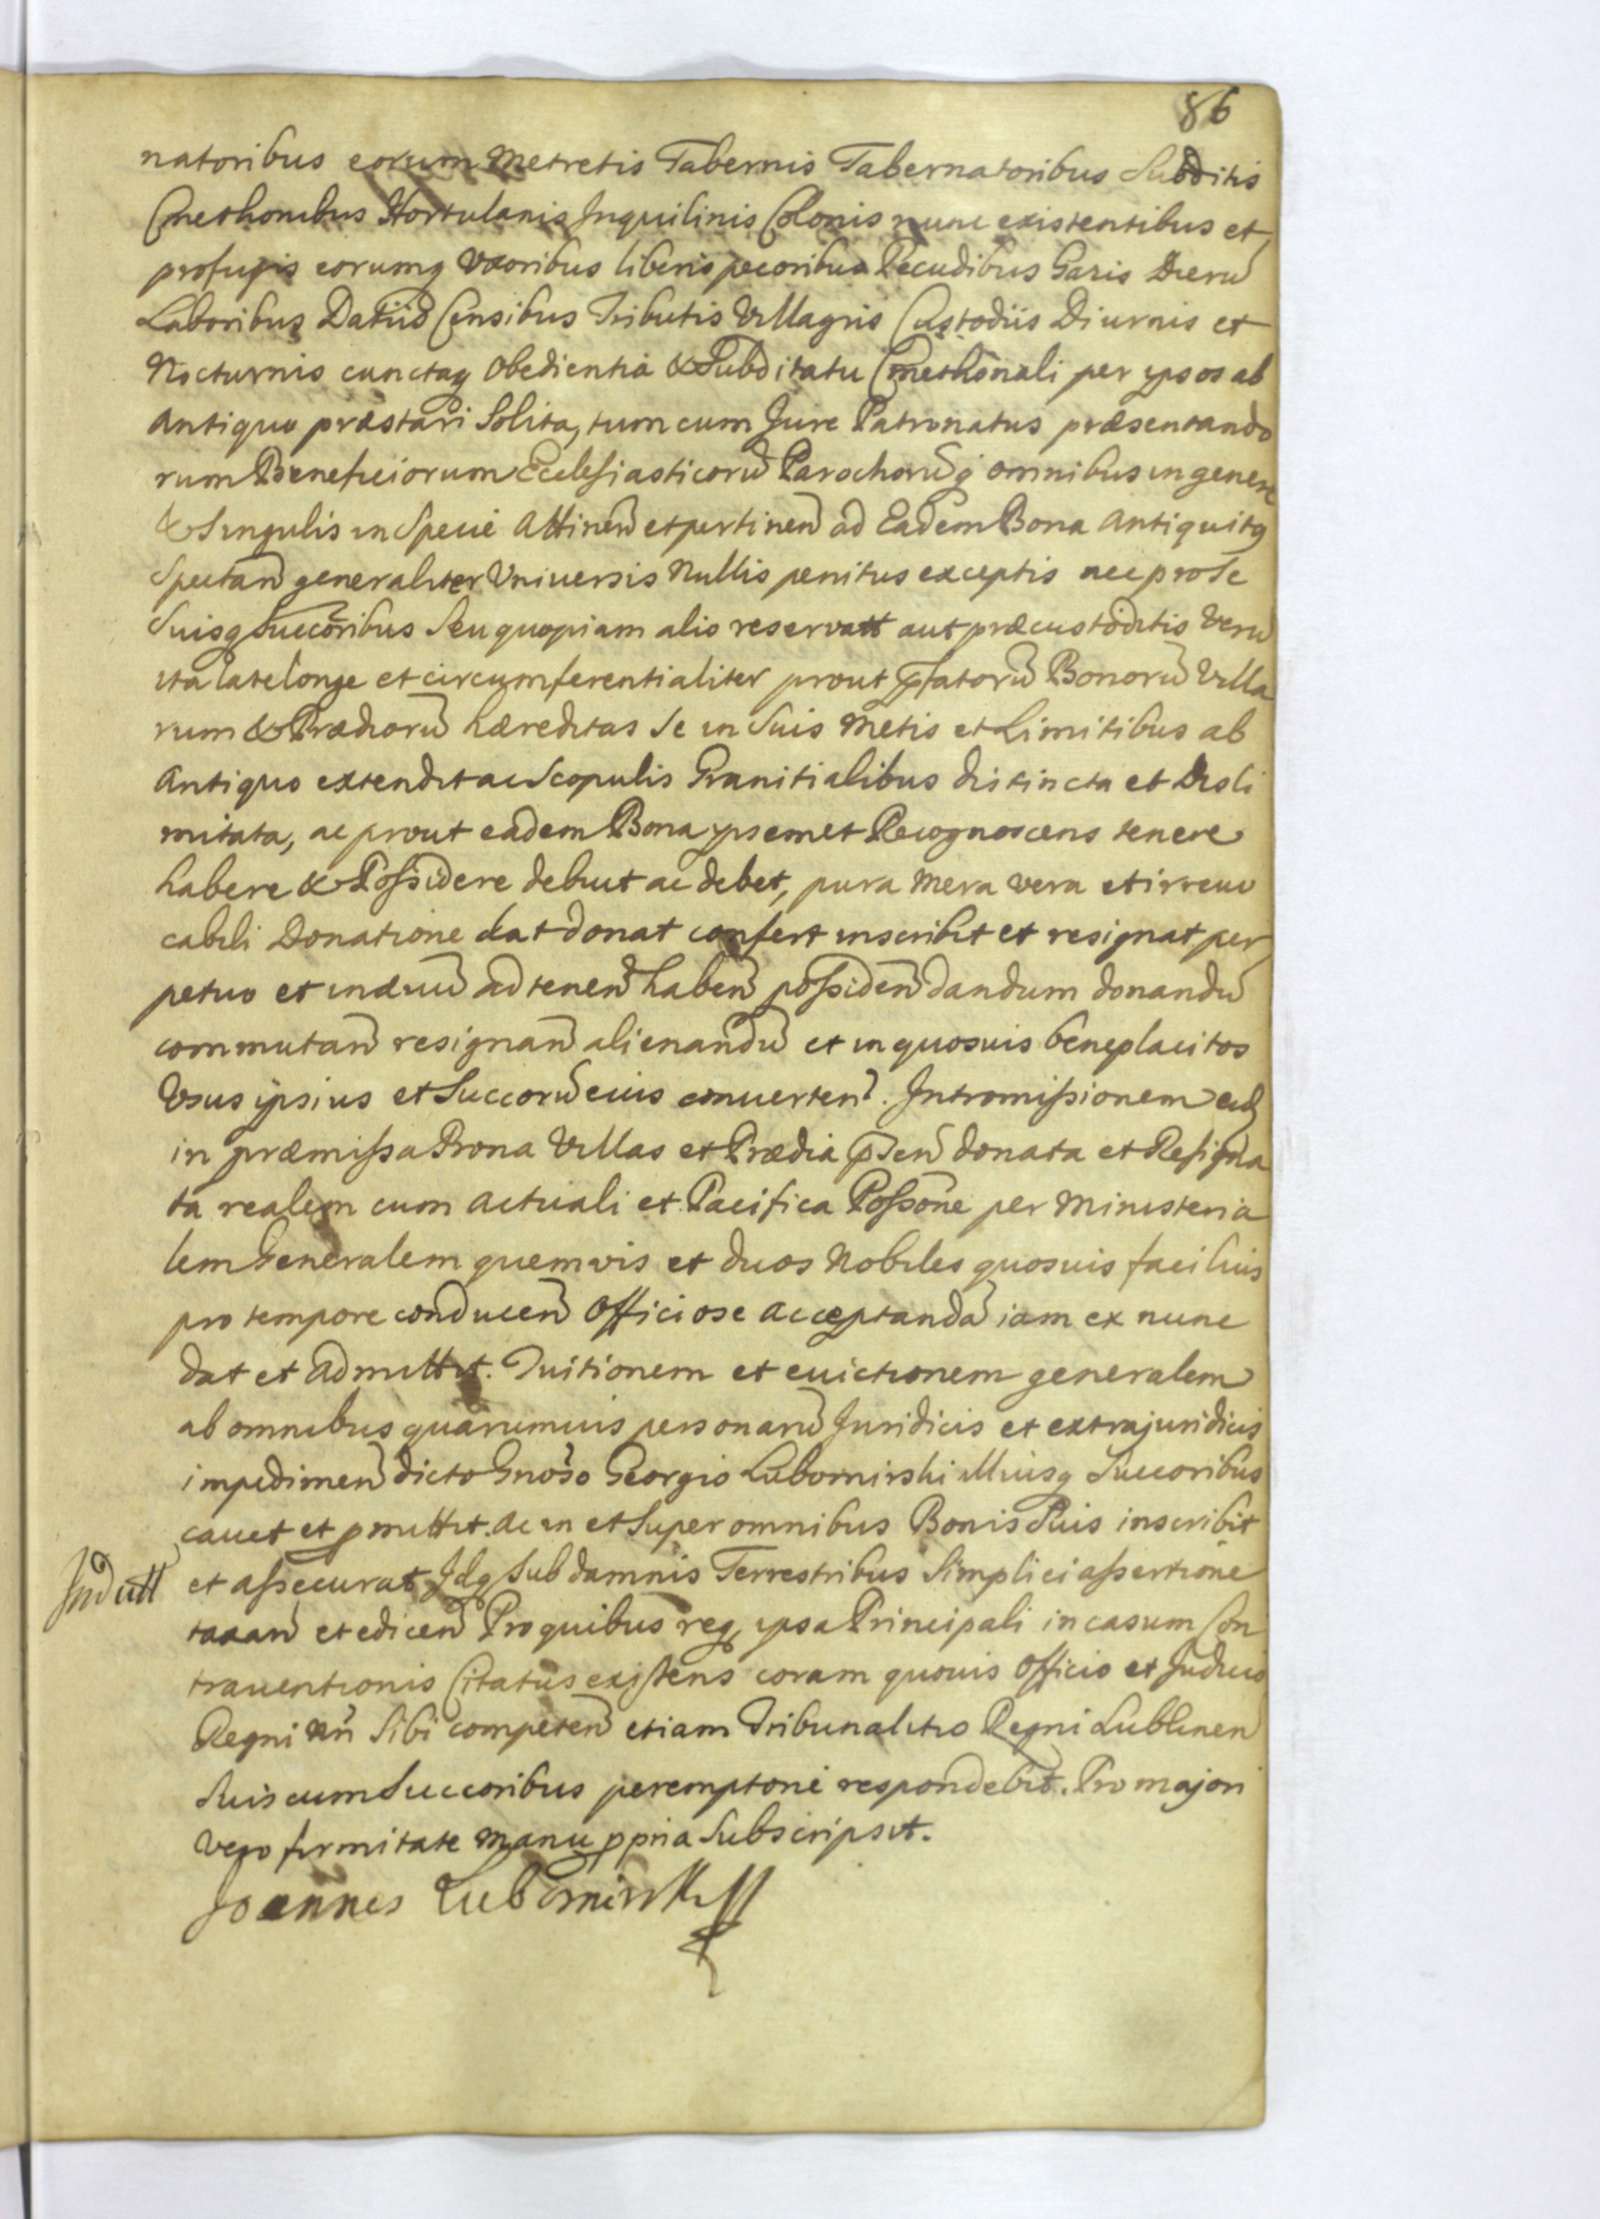 86
natoribus eorum Metretis Tabernis Tabernatoribus Subditis
Cmethonibus Hortulanis Inquilinis Colonis nunc existentibus et
profugis eorumq Vxoribus liberis pecoribus Pecudibus Gazis Dierū
Laboribus Datiis Censibus Tributis Villagiis Custodiis Diurnis et
Nocturnis cunctaq Obedientia & Subditatu Cmethonali per ipsos ab
Antiquo præstari Solita, tum cum Jure Patronatus præsentando
rum Beneficiorum Ecclesiasticorū Parochorūq omnibus in genere
& Singulis in Specie Attinen̄ et pertinen̄ ad Eadem Bona Antiquitq
Spectan̄ generaliter Vniuersis Nullis penitus exceptis nec pro Se
Suisq Succōribus Seu quopiam alio reservatt aut præcustoditis Verū
ita late longe et circumferentialiter prout pfatorū Bonorū Villa
rum & Prædiorū hæreditas Se in Suis Metis et Limitibus ab
Antiquo extendit ac Scopulis Granitialibus distincta et Disli
mitata, ac prout eadem Bona ipsemet Recognoscens tenere
habere & Possidere debuit ac debet, pura Mera vera et irreuo
cabili Donatione dat donat confert inscribit et resignat per
petuo et in ævū ad tenen̄ haben̄ possiden̄ dandum donandū
commutan̄ resignan̄ alienandū et in quosuis beneplacitos
Vsus ipsius et Succorū eius conuerten̄. Intromissionem eid
in præmissa Bona Villas et Prædia pſen̄ donata et Resigna
ta realem cum actuali et Pacifica Possōne per Ministeria
lem Generalem quemvis et duos Nobiles quosuis facilius
pro tempore conducen̄ Officiose Acceptandā iam ex nunc
dat et Admittit. Tuitionem et euictionem generalem
ab omnibus quarumuis personarū Juridicis et extrajuridicis
impedimen̄ dicto Gnōso Georgio Lubornirski Illiusq Succoribus
cauet et pmittit. Ac in et Super omnibus Bonis Suis inscribit
Indutt
et assecurat Idq Sub damnis Terrestribus Simplici assertione
taxan̄ et edicen̄ Pro quibus req ipsa Principali in casum Con
trauentionis Citatus existens coram quouis Officio et Judicio
Regni Sibi competen̄ etiam Tribunalitio Regni Lublinen̄
Suis cum Succoribus peremptorie respondebit. Pro majori
Vero firmitate Manu ppria Subscripsit.
Joannes Lubornirski